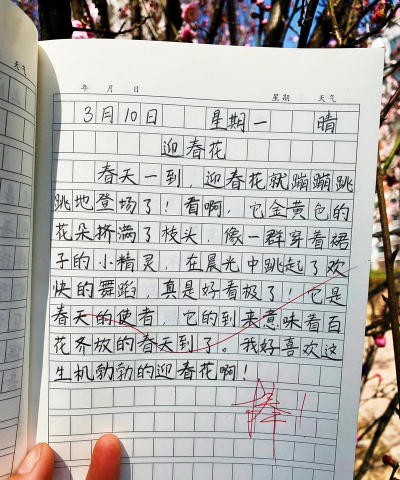 天气
年 月 日 星期 天气
3月10日 星期一 晴
迎春花
春天一到，迎春花就蹦蹦跳
跳地登场了！看啊，它金黄色的
花朵挤满了枝头，像一群穿着裙
子的小精灵，在晨光中跳起了欢
快的舞蹈，真是好看极了！它是
春天的使者，它的到来意味着百
花齐放的春天到了。我好喜欢这
生机勃勃的迎春花啊！
棒！